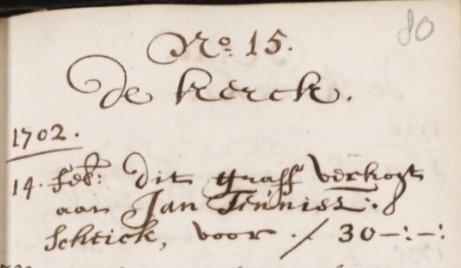 80
No: 15.
de kerck.
1702.
14. feb: dit graff verkogt
aan Jan Tennisz:
Scheick, voor ./ 30-:-: